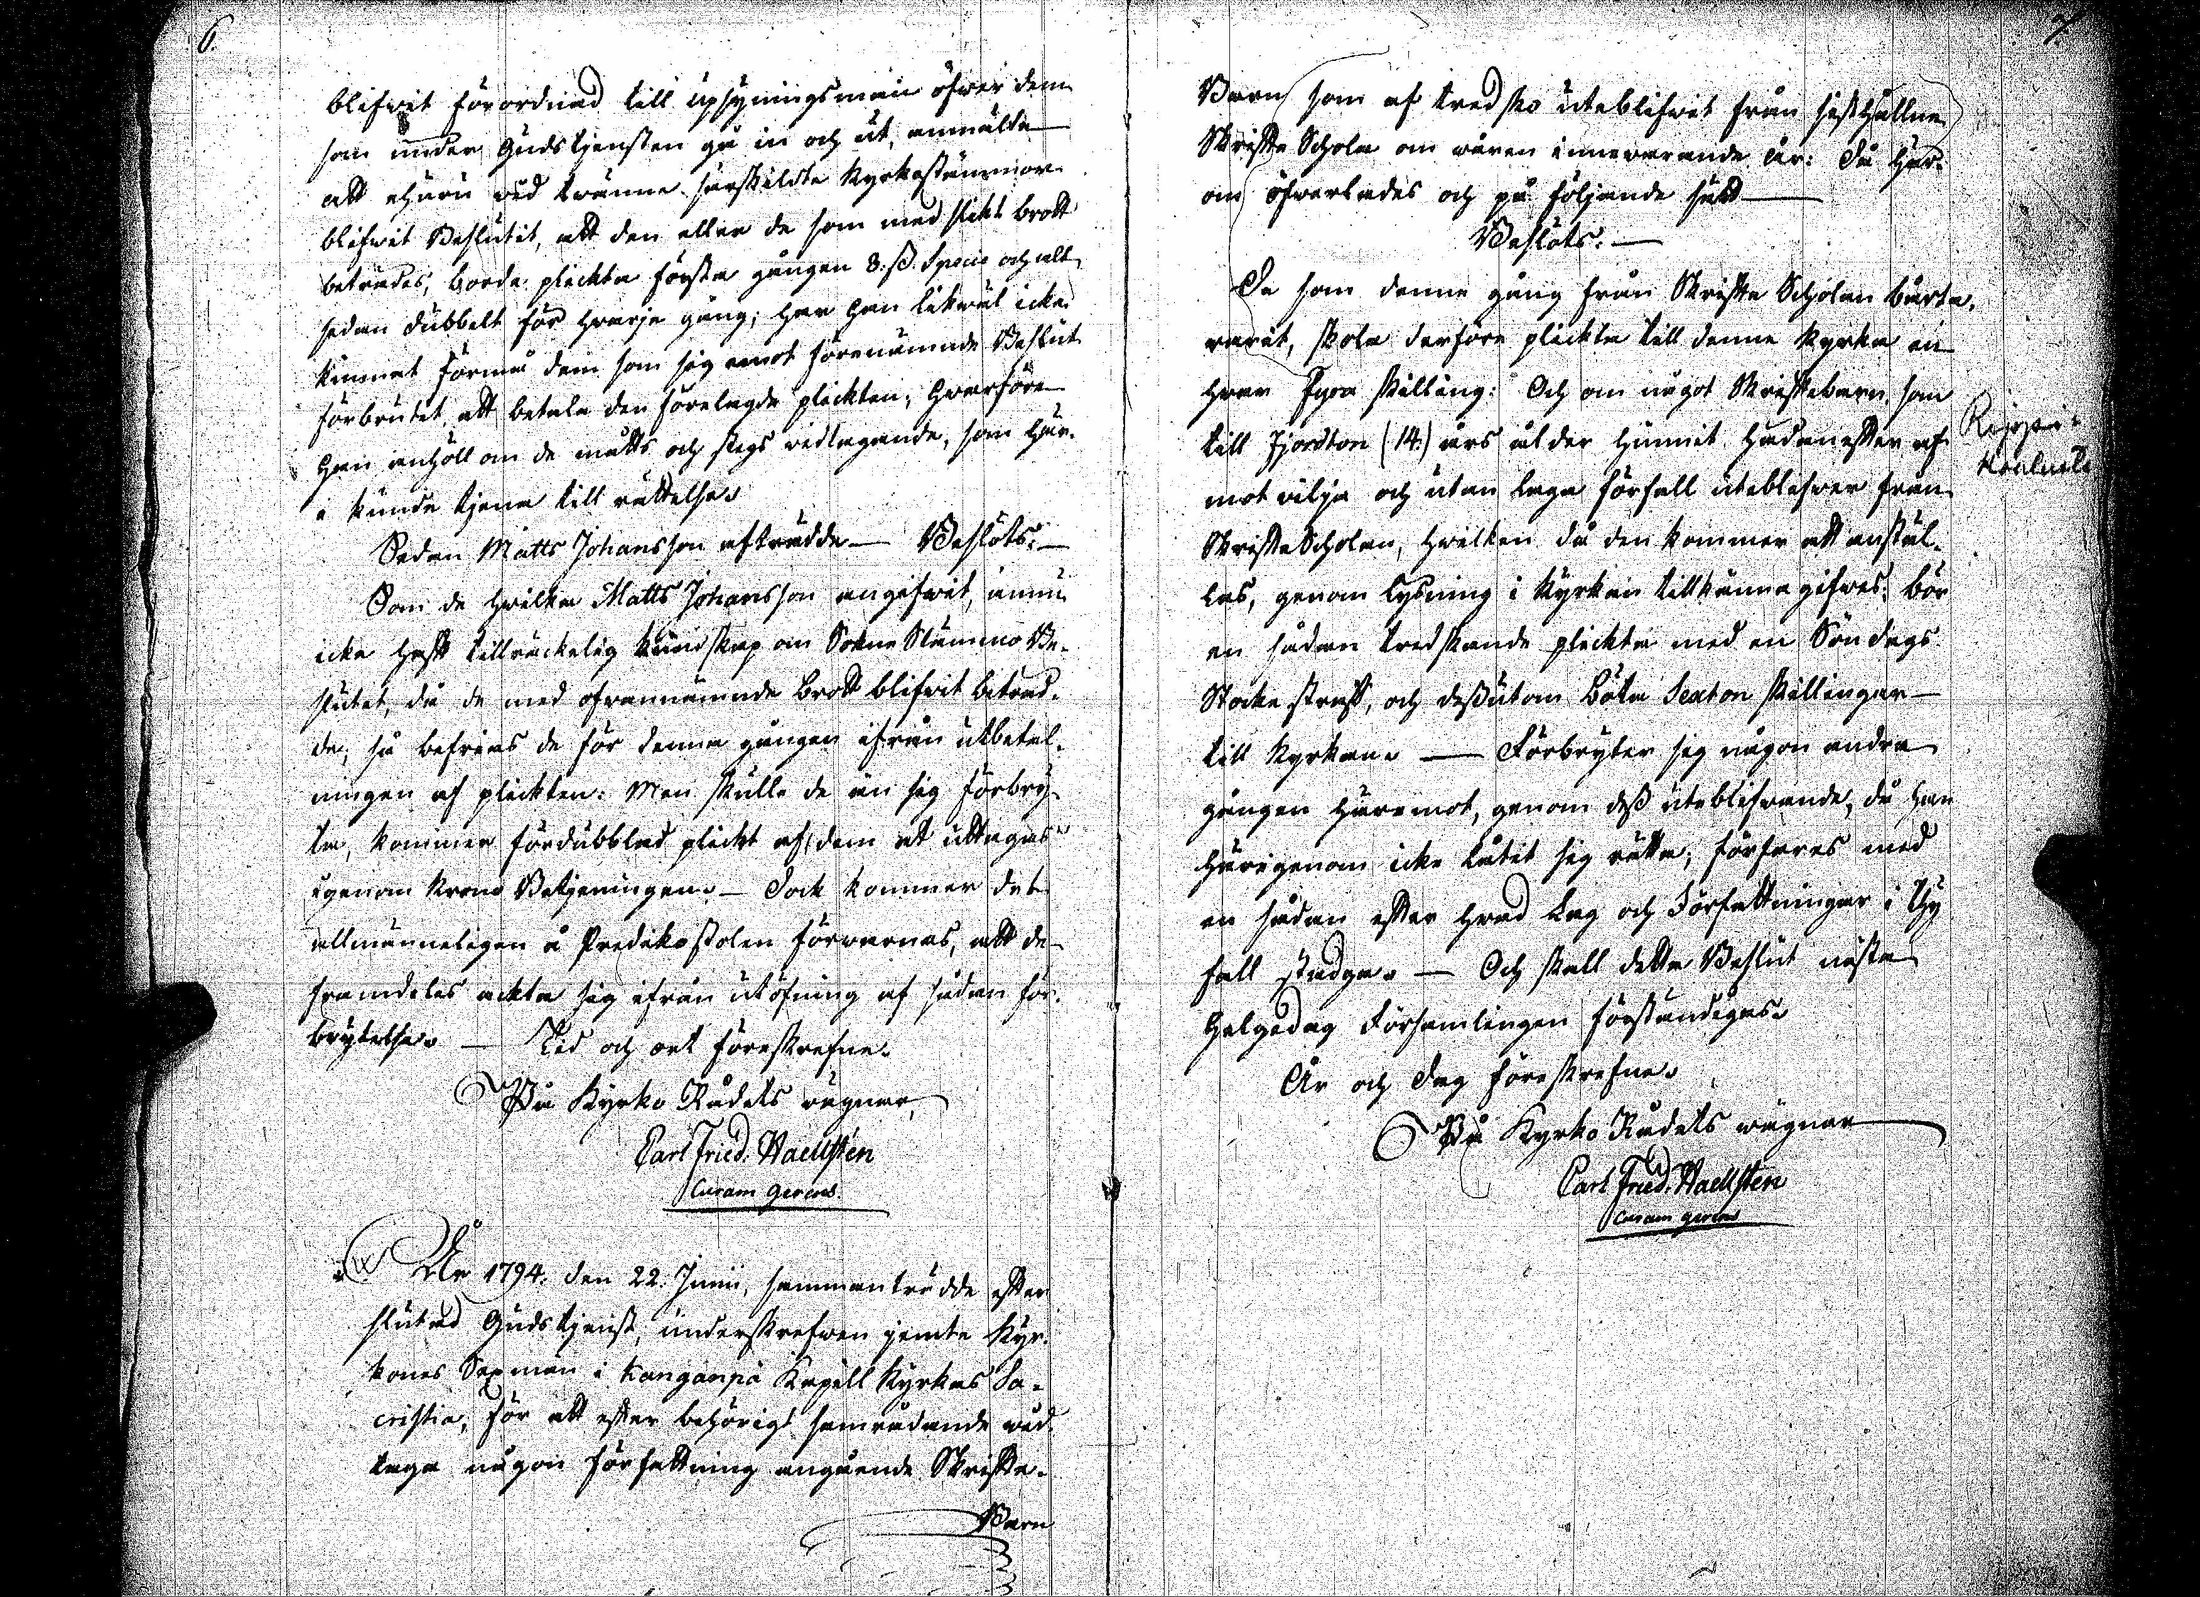 6.
blifvit förordnad till upsyningsman öfwer dem
som under Gudstjensten gå in och ut, anmälte
att ehuru wid twänne särskildte Kyrkostämmor
blifwit Beslutit, att den eller de som med slikt brott
beträdes, borde plickta första gången 8. ß. Specie och alt
sedan dubbelt för hwarje gång; har han likwäl icke
kunnat förmå dem som sig emot förenämnde Beslut
förbrutet, att betala den förelagde plickten; hwarföre
han anhöll om de måtts och stegs widtagande, som här-
i kunde tjena till rättelse.
Sedan Matts Johansson afträdde — Beslöts: —
Som de hwilka Matts Johansson angifwit, ännu
icke haft tillräckelig kundskap om Sokne Stämmo Be-
slutet, då de med ofvannämnde brott blifvit beträd-
de; så befrias de för denna gången ifrån utbetal-
ningen af plickten: Men skulle de än sig förbry-
ta, kommer fördubblad plickt af dem at uttagas
igenom Krono Betjeningen. — Dock kommer det
allmänneligen å Predikostolen förwarnas, att de
framdeles ackta sig ifrån utöfning af sådan för-
brytelse. — Tid och ort föreskrefne.
På Kyrko Rådets vägnar,
Carl Fried. Waellsten
Curam gerens.
År 1794. den 22. Junii, sammanträdde efter
slutad Gudstjenst, underskrefwen jemte Kyr-
kones Sexmän i Kanganpä Kapell Kyrkas Sa-
cristia, för att efter behörigt samrådande wid-
taga någon författning angående Skrifte-
Barn
7.
Barn som af tredsko uteblifwit från sisthållne
Skrifte Schola om våren innevarande år: Då här-
om öfwerlades och på följande sätt —
Beslöts: —
De som denne gång från Skrifte Scholan borta
varit, skola derföre plickta till denne Kyrka en
hwar Fyra skilling: Och om något Skriftebarn, som
till Fjorton (14.) års ålder hunnit hädanefter af
motvilja och utan laga förfall uteblifwer från
Skrifte Scholan, hwilken då den kommer att anstäl-
las, genom lysning i Kyrkan tillkänna gifwes; bör
en sådan tredskande plickta med en Söndags
Stocke straff, och dessutom böta Sexton skillingar
till Kyrkan. — Förbryter sig någon andra
gången häremot, genom dess uteblifwande, då han
härigenom icke låtit sig rätta; förfares med
en sådan efter hwad Lag och Författningar i thy
fall stadga. — Och skall detta Beslut nästa
Helgedag Församlingen förständigas.
År och dag föreskrefne.
På Kyrko Rådets wägnar
Carl Fried. Waellsten
Curam gerens